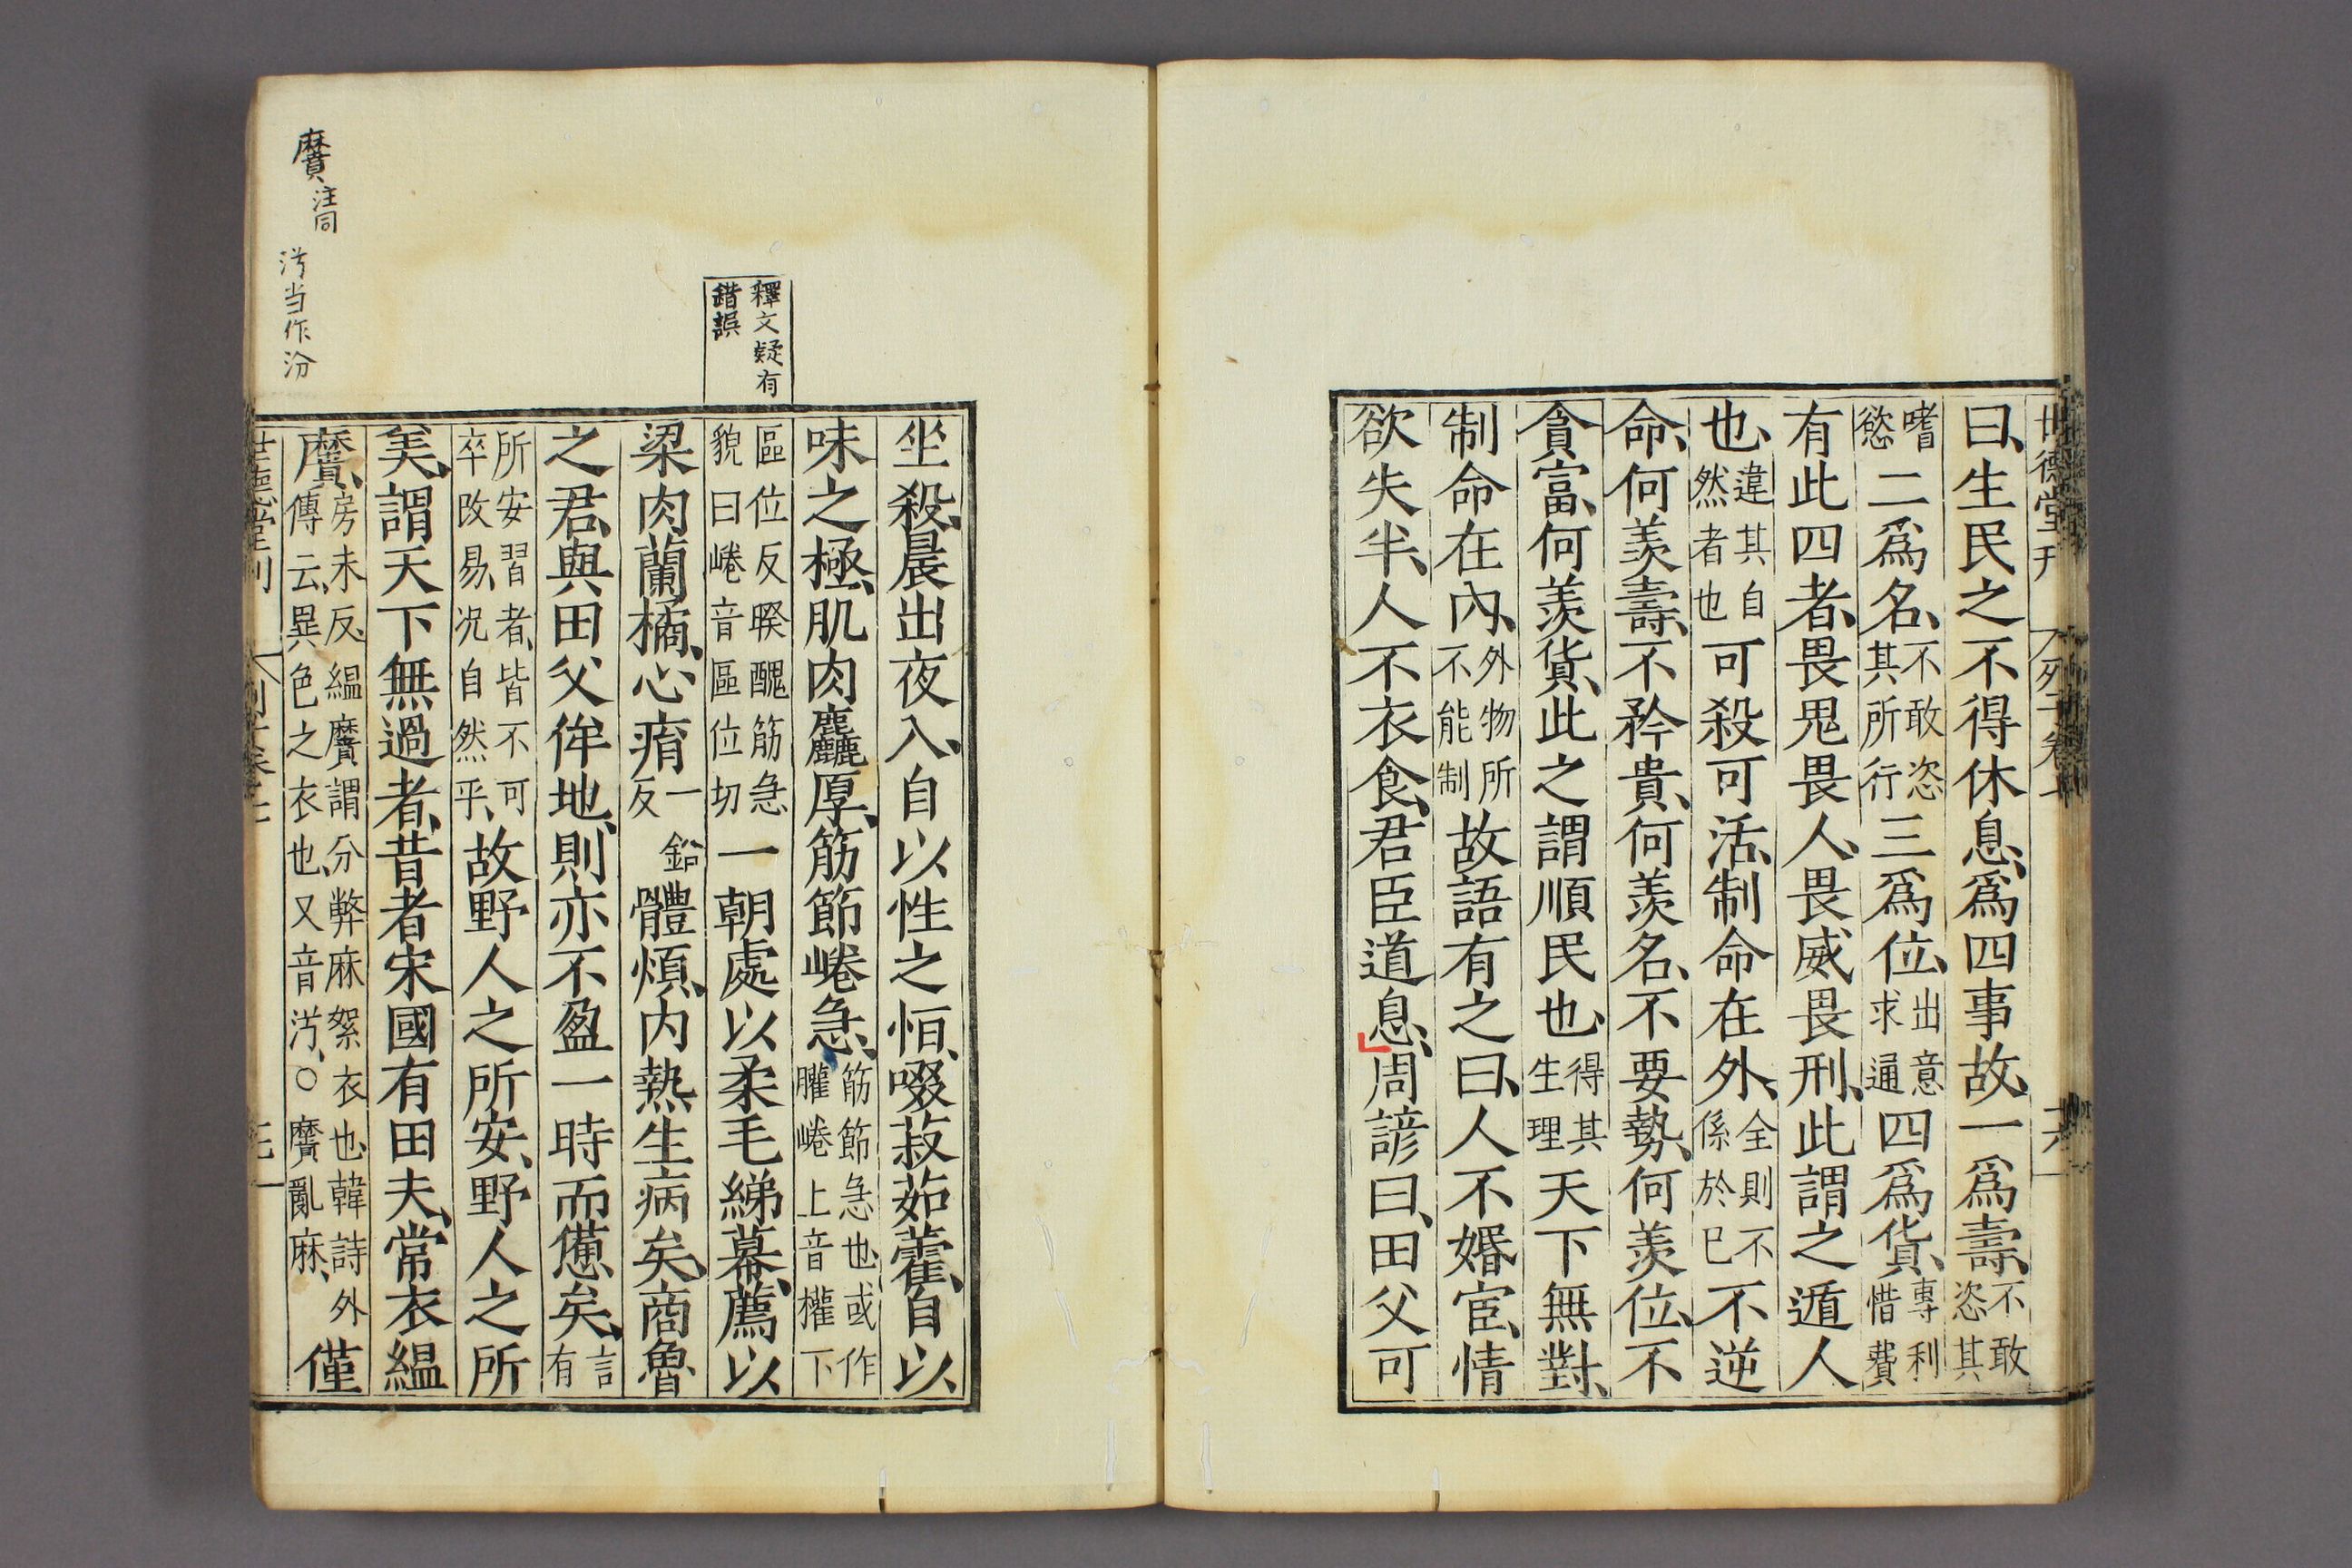 世德堂刊 列子卷七
曰、生民之不得休息、爲四事故、一爲壽、不敢恣其
嗜慾二爲名、不敢恣其所行三爲位、出意求通四爲貨、專利惜費
有此四者、畏鬼畏人、畏威畏刑、此謂之遁人
也、違其自然者也可殺可活、制命在外、全則不係於已不逆
命、何羨壽、不矜貴、何羨名、不要勢、何羨位、不
貪富、何羨貨、此之謂順民也、得其生理天下無對、
制命在內、外物所不能制故語有之曰、人不婚宦、情
欲失半、人不衣食、君臣道息、周諺曰、田父可
坐殺、晨出夜入、自以性之恒、啜菽茹藿、自以
味之極、肌肉麤厚、筋節㟡急、筋節急也或作臛㟡上音權下
區位反䁂醜筋急貌曰㟡音區位切一朝處以柔毛綈幕、薦以
梁肉蘭橘、心㾓一鉛反體煩、内熱生病矣、商魯
之君、與田父侔地、則亦不盈一時而憊矣、言有
所安習者、皆不可卒改易、况自然乎、故野人之所安、野人之所
美、謂天下無過者、昔者宋國有田夫、常衣緼
黂、房未反、緼黂謂分弊麻絮衣也、韓詩外傳云、異色之衣也、又音汅、○黂亂麻、僅
世德堂刊 列子卷七
釋文疑有
錯誤
黂注同
汅当作汾